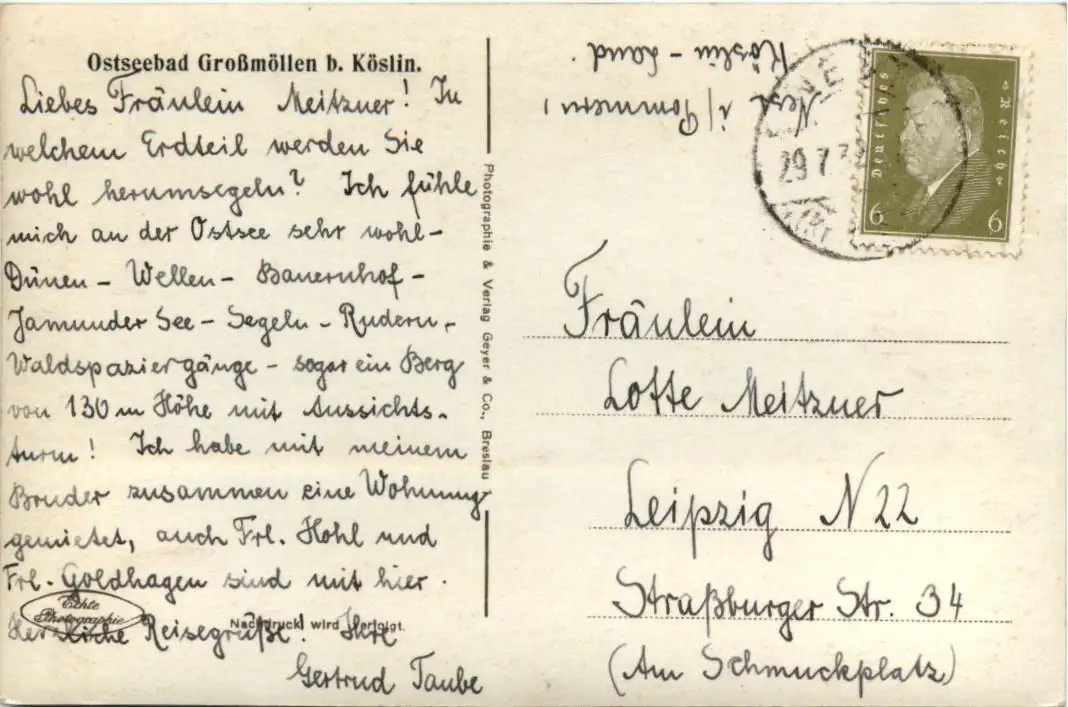 Ostseebad Großmöllen b. Köslin.
Liebes Fräulein Meitzner! In
welchem Erdteil werden Sie
wohl herumsegeln? Ich fühle
mich an der Ostsee sehr wohl-
Dünen - Wellen - Bauernhof -
Jamunder See - Segeln - Rudern -
Waldspaziergänge - sogar ein Berg
von 130 m Höhe mit Aussichts-
turm! Ich habe mit meinem
Bruder zusammen eine Wohnung
gemietet, auch Frl. Hohl und
Frl. Goldhagen sind mit hier.
Herzliche Reisegrüße! Ihre
Gertrud Taube
Echte
Photographie
Nachdruck wird verfolgt.
Photographie & Verlag Geyer & Co., Breslau
Nest i/Pommern,
Köslin-Land.
NEST
29.7.32
Deutsches
Reich
6 6
Fräulein
Lotte Meitzner
Leipzig N 22
Straßburger Str. 34
(Am Schmuckplatz)